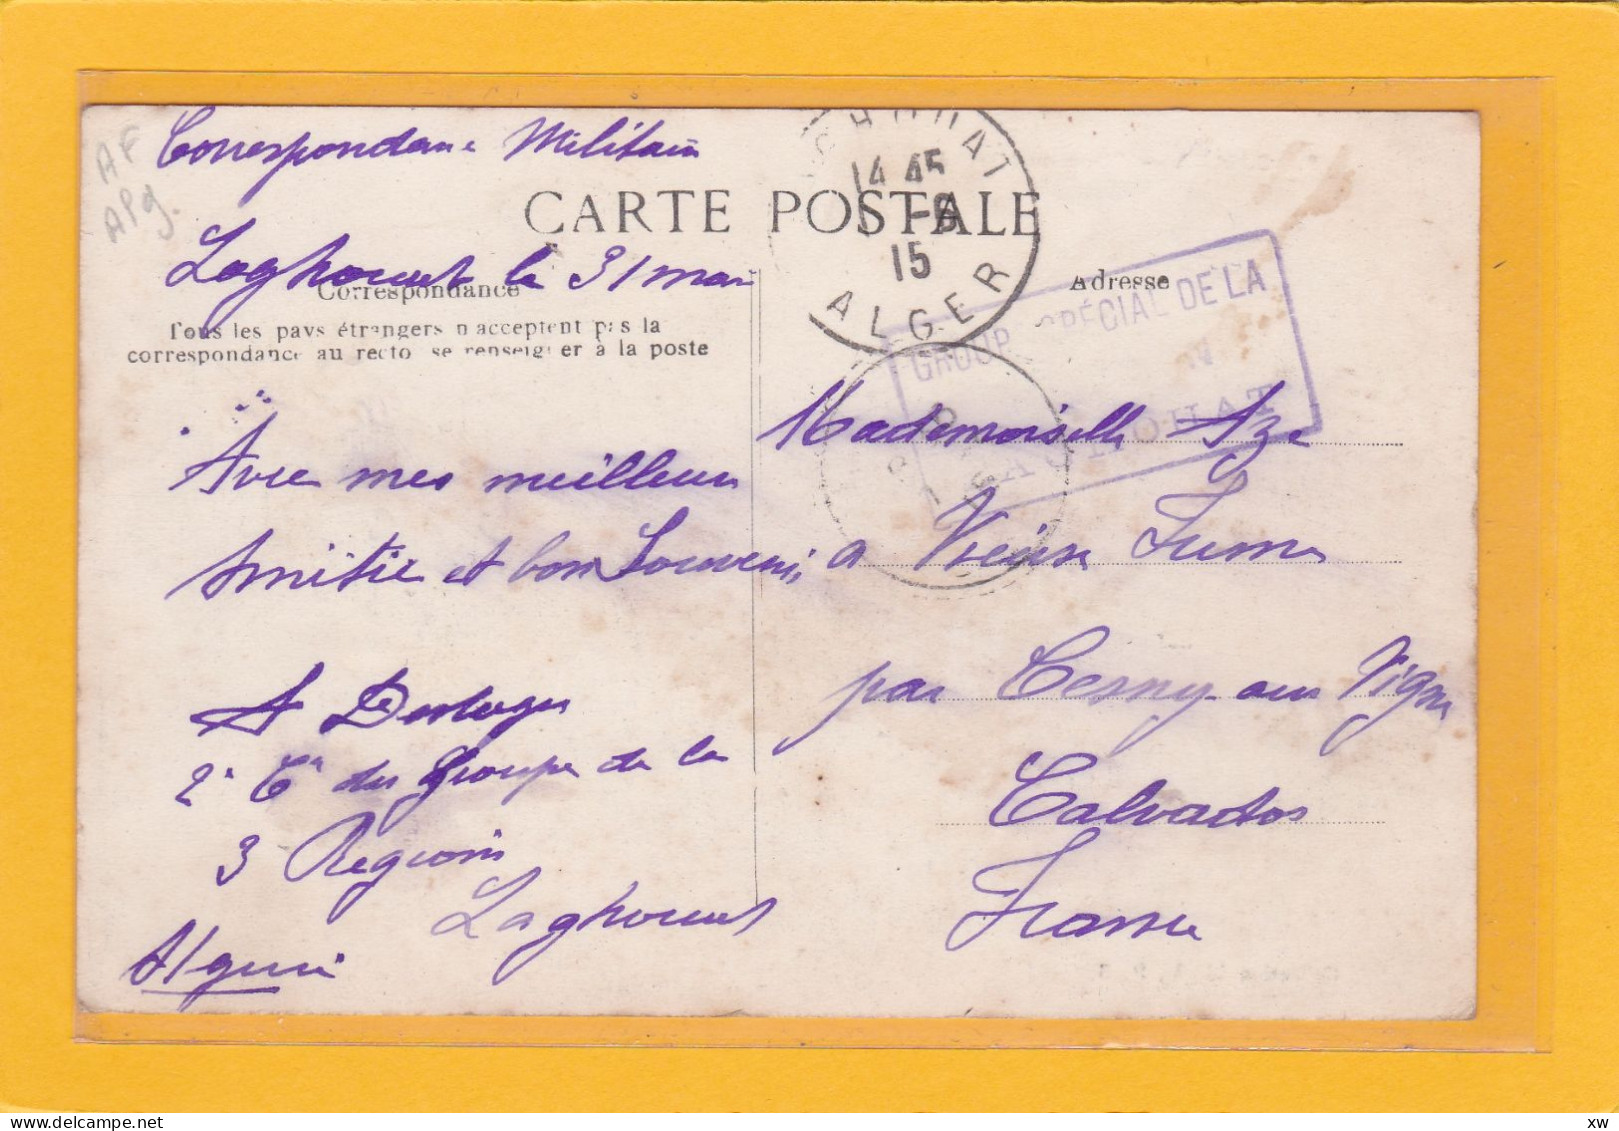 AF
Alg.
Correspondance Militaire
CARTE POSTALE
LAGHOUAT
14 45
1 -6
15
ALGER
Laghouat le 31 mai
Correspondance
Adresse
Tous les pays étrangers n'acceptent pas la
correspondance au recto se renseigner à la poste
GROUP SPÉCIAL DE LA
LAGHOUAT
Avec mes meilleurs
Amitié et bon Souvenir
Mademoiselle Aze
a Vieux Fumé
par Cesny aux Vignes
Calvados
France
A Desloges
2e Cie du Groupe de la
3 Region
Laghouat
Algerie
xw